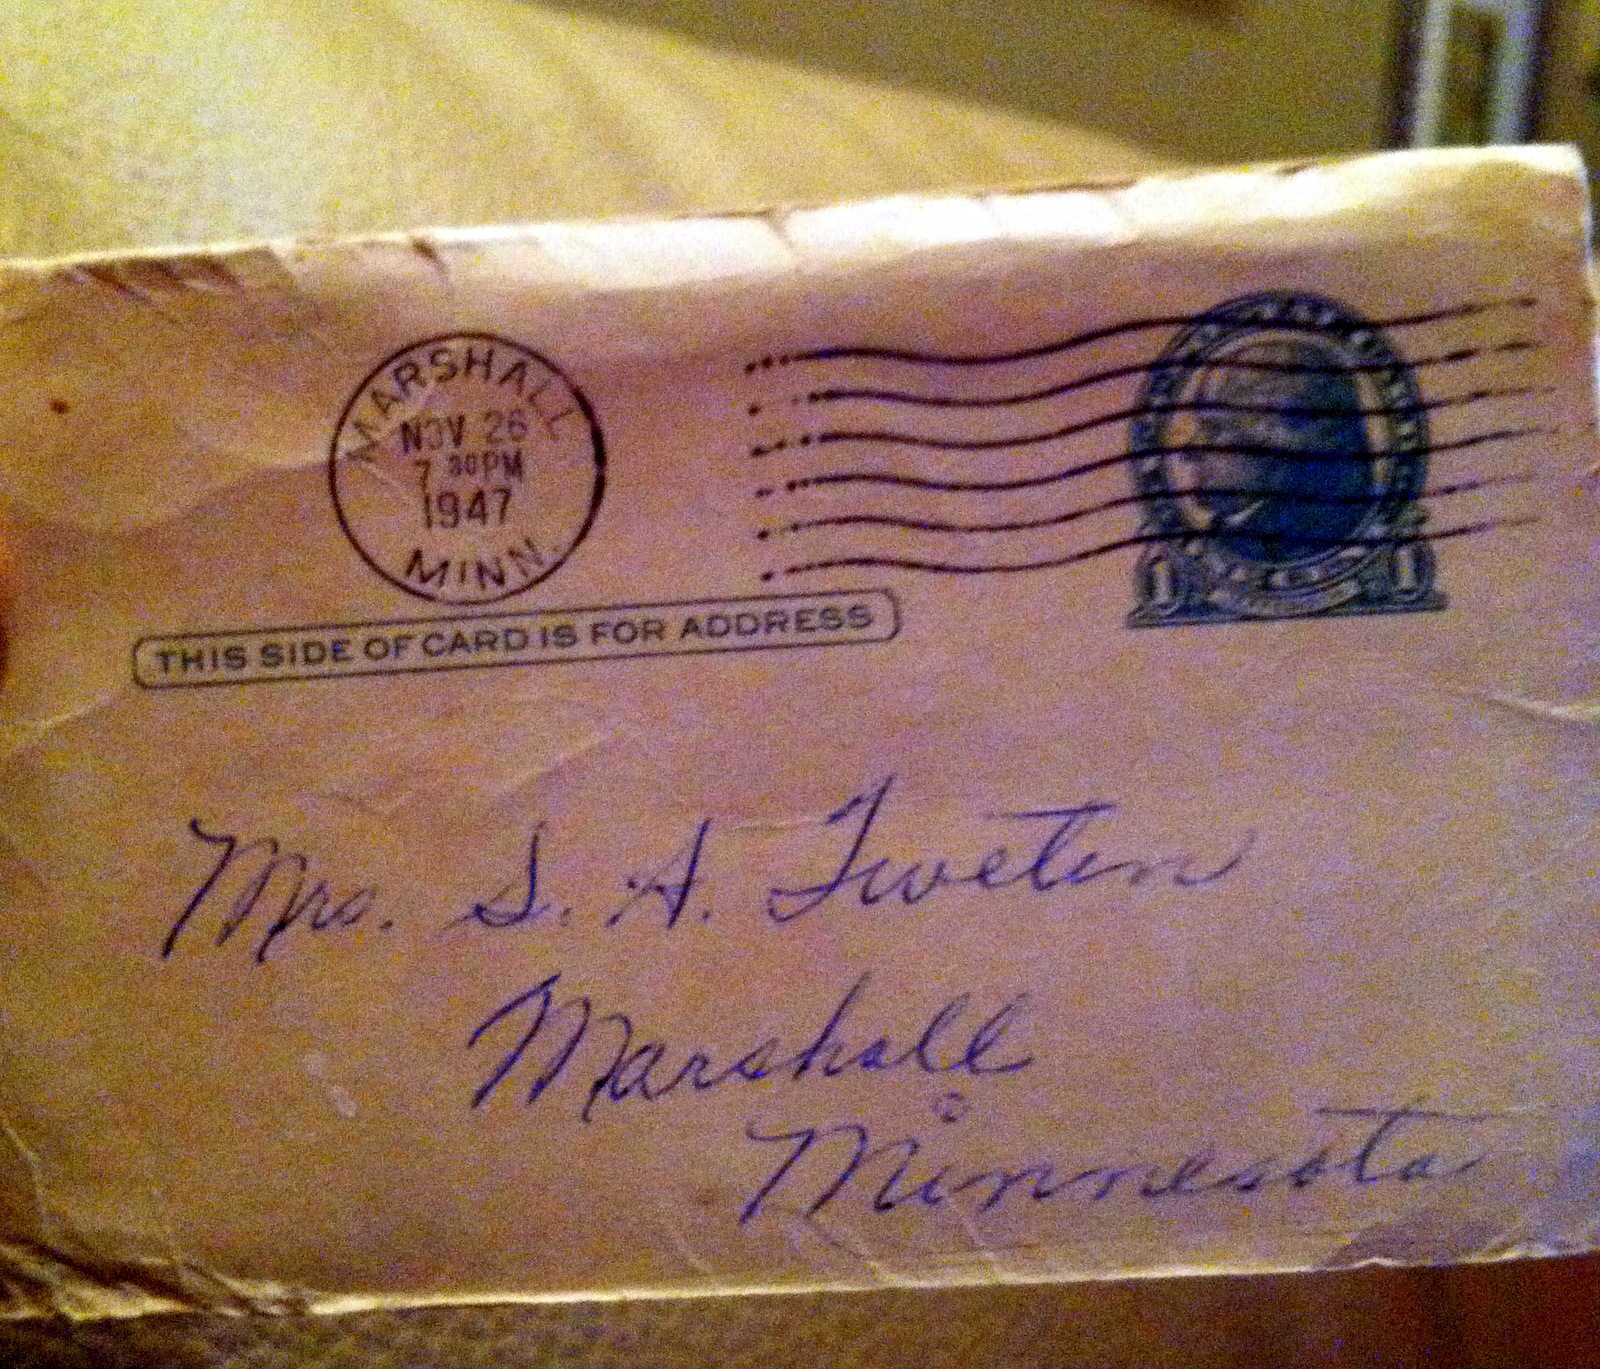 MARSHALL
NOV 26
7 30 PM
1947
MINN.
1 1
THIS SIDE OF CARD IS FOR ADDRESS
Mrs. S. A. Tweten
Marshall
Minnesota